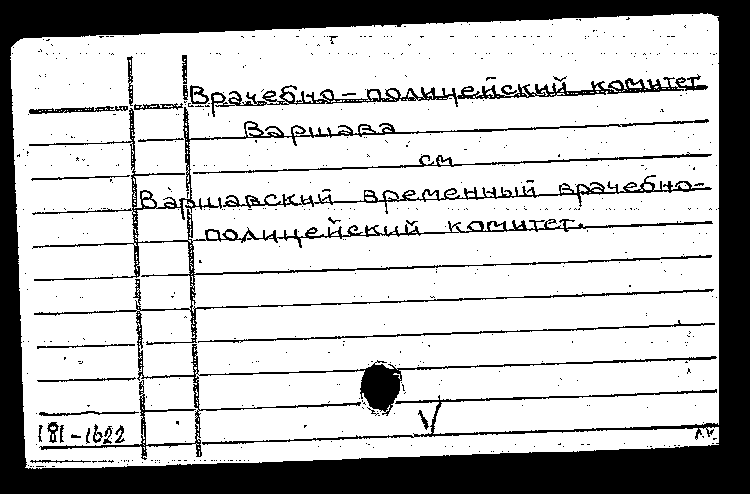 Врачебно-полицейский комитет
Варшава
см
Варшавский временный врачебно-
полицейский комитет.
181-1622